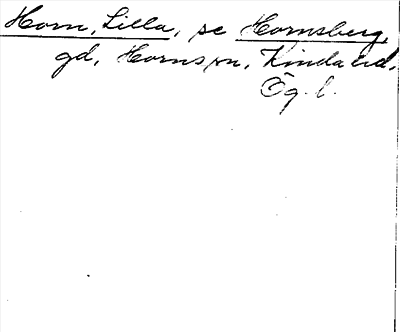 Horn, Lilla, se Hornsberg,
gd, Horns sn, Kinda hd,
Ög. l.